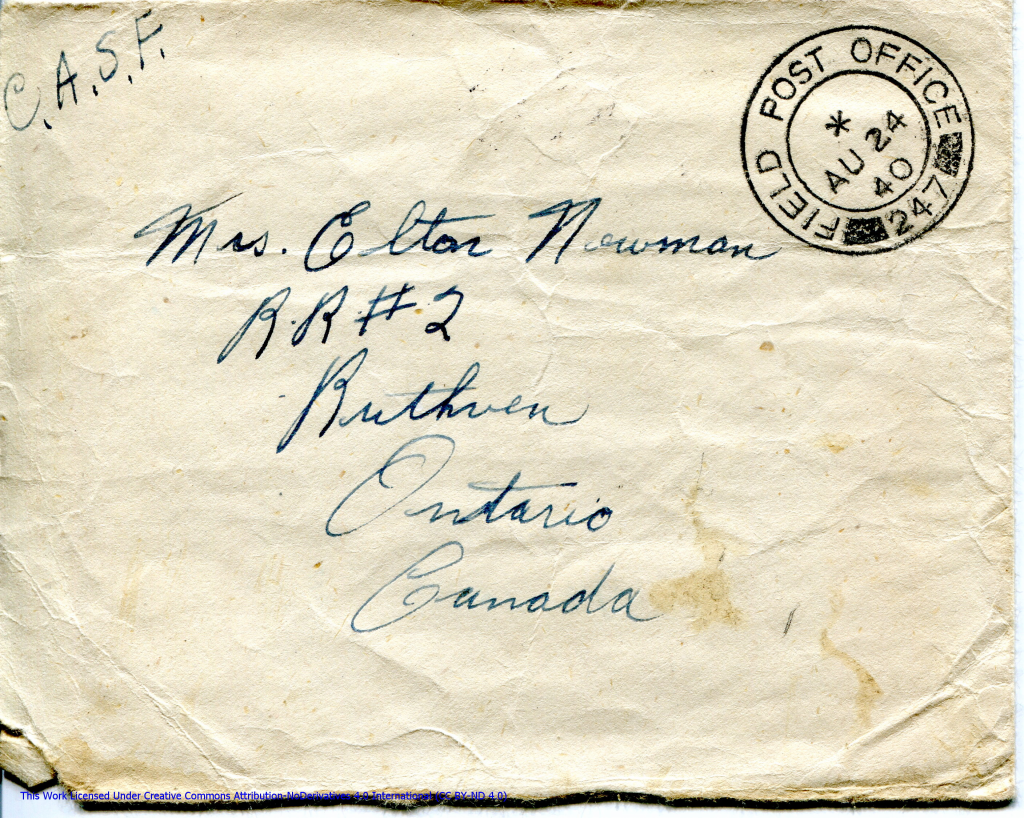 C.A.S.F.
FIELD POST OFFICE
*
AU 24
40
247
Mrs. Elton Newman
R.R #2
Ruthven
Ontario
Canada
This Work Licensed Under Creative Commons Attribution-NoDerivatives 4.0 International (CC BY-ND 4.0)